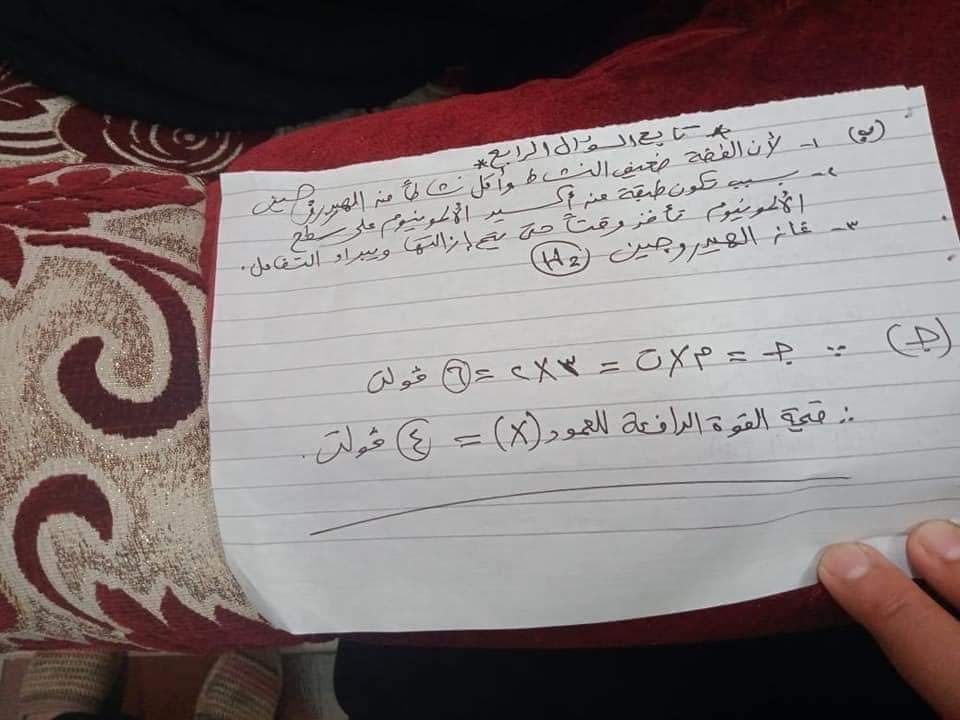 * تابع السؤال الرابع *
(ب) ١- لأن الفضة ضعيف النشاط وأقل نشاطاً من الهيدروجين
٢- بسبب تكون طبقة من أكسيد الألومنيوم على سطح
الألومنيوم تأخذ وقتاً حتى يتم إزالتها ويبدأ التفاعل.
٣- غاز الهيدروجين (H₂)
(جـ) ∵ جـ = م × ت = ٣ × ٢ = ٦ ڤولت
∴ قيمة القوة الدافعة للعمود (X) = ٤ ڤولت.